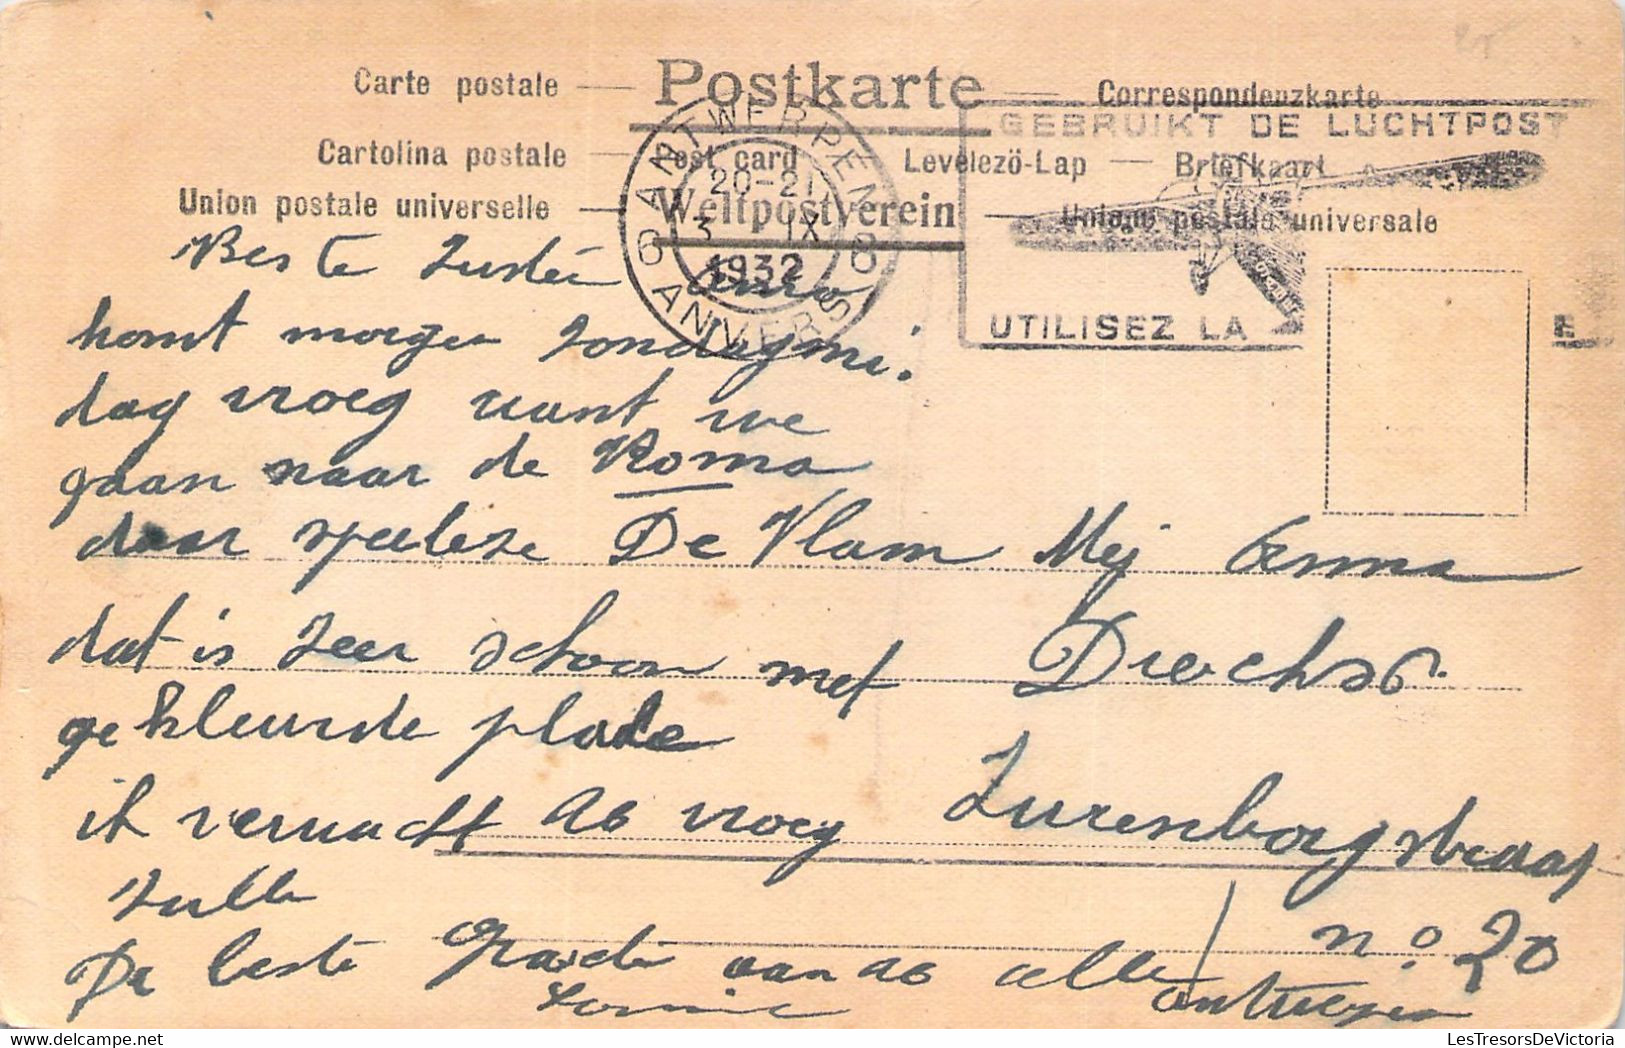 Carte postale — Postkarte — Correspondenzkarte
Cartolina postale — Post card Levelező-Lap — Briefkaart
Union postale universelle — Weltpostverein — Unione postale universale
6 ANTWERPEN 6
20-21
3 IX
1932
ANVERS
GEBRUIKT DE LUCHTPOST
UTILISEZ LA
E
Beste Zuster Anna
komt morgen zondagmi.
dag vroeg want we
gaan naar de Roma
daar speelese De Vlam
dat is zeer schoon met
gekleurde plade
ik verwacht as vroeg
zulle
De beste Groeten van as alle
Mej Anna
Zurenborgstraat
n.o 20
Antwerpen
LesTresorsDeVictoria.com